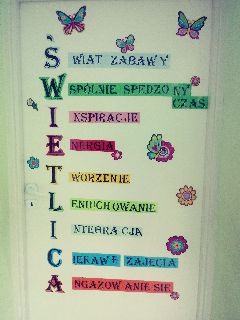 ŚWIAT ZABAWY
WSPÓLNIE SPĘDZONY
CZAS
INSPIRACJE
ENERGIA
TWORZENIE
LENIUCHOWANIE
INTEGRACJA
CIEKAWE ZAJĘCIA
ANGAZOWANIE SIĘ